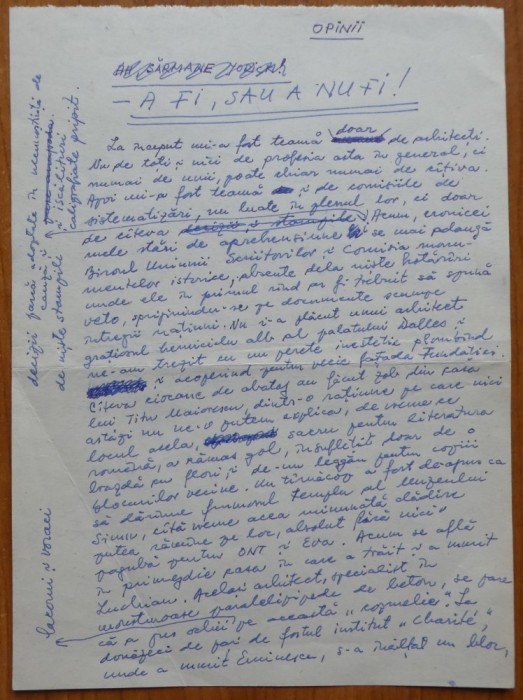 OPINII
AH SĂRMANE YORICK!
– A FI, SAU A NU FI!
La început mi-a fost teamă doar de arhitecți.
Nu de toți și nici de profesia asta în general, ci
numai de unii, poate chiar numai de cîțiva.
Apoi mi-a fost teamă și de comisiile de
sistematizări, nu luate în plenul lor, ci doar
de cîteva decizii și stampile. Acum, cronicei
mele stări de aprehensiune se mai palează
Biroul Uniunii Scriitorilor și Comisia monu-
mentelor istorice, absente dela niște hotărîri
unde ele în primul rînd ar fi trebuit să spună
veto, sprijinindu-se pe documente scumpe
întregii națiuni. Nu i-a plăcut unui arhitect
grațiosul hemiciclu alb al palatului Dalles și
ne-am trezit cu un perete inestetic plombînd
și acoperind pentru vecie fațada Fundației.
Cîteva ciocane de abataj au făcut zob din casa
lui Titu Maiorescu, dintr-o rațiune pe care nici
astăzi nu ne-o putem explica, de vreme ce
locul acela, sacru pentru literatura
română, a rămas gol, însuflețit doar de o
boagdă cu flori și de-un leagăn pentru copiii
blocurilor vecine. Un tîrnăcop a fost deajuns ca
să dărîme frumosul templu al muzeului
Simu, cîtă vreme acea minunată clădire
putea rămîne pe loc, absolut fără nici o
pagubă pentru ONT și Eva. Acum se află
în primejdie casa în care a trăit și a murit
Luchian. Același arhitect, specialist în
monstruoase paralelipipede de beton, se pare
că a pus ochii pe această „coșmelie". La
douăzeci de pași de fostul institut „Charité",
unde a murit Eminescu, s-a înălțat un bloc,
decizii fără adoptate în necunoștință de
cauză și
a iscăliturii
de niște stampile caligrafiate pripit.
lacomi și voraci